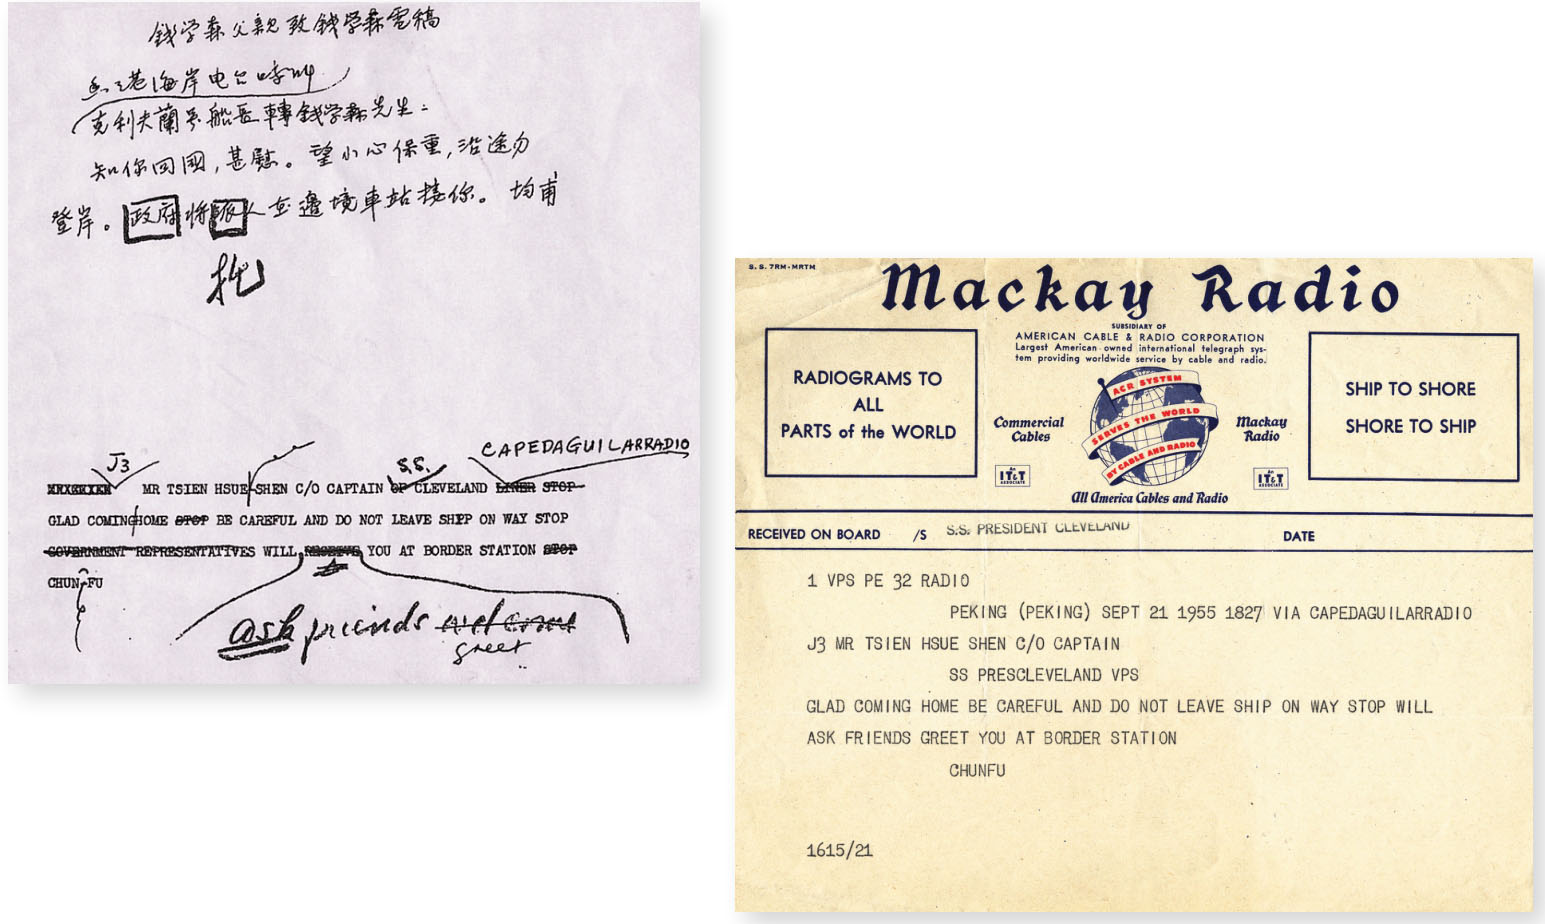 錢学森父親致錢学森電稿
香港海岸电台呼叫
克利夫蘭号船長轉錢学森先生：
知你回國，甚慰。望小心保重，沿途勿
登岸。政府将派人在邊境車站接你。均甫
托
CAPEDAGUILARRADIO
J3 S.S.
MR TSIEN HSUE-SHEN C/O CAPTAIN OF CLEVELAND LINER STOP
GLAD COMINGHOME STOP BE CAREFUL AND DO NOT LEAVE SHIP ON WAY STOP
GOVERNMENT REPRESENTATIVES WILL RECEIVE YOU AT BORDER STATION STOP
CHUN-FU
ask friends welcome
greet
S.S. 7RM-MRTM
Mackay Radio
SUBSIDIARY OF
AMERICAN CABLE & RADIO CORPORATION
Largest American owned international telegraph sys-
tem providing worldwide service by cable and radio.
RADIOGRAMS TO
ALL
PARTS of the WORLD
Commercial
Cables
ACR SYSTEM
SERVES THE WORLD
BY CABLE AND RADIO
Mackay
Radio
An
IT&T
ASSOCIATE
An
IT&T
ASSOCIATE
All America Cables and Radio
SHIP TO SHORE
SHORE TO SHIP
RECEIVED ON BOARD /S S.S. PRESIDENT CLEVELAND DATE
1 VPS PE 32 RADIO
PEKING (PEKING) SEPT 21 1955 1827 VIA CAPEDAGUILARRADIO
J3 MR TSIEN HSUE SHEN C/O CAPTAIN
SS PRESCLEVELAND VPS
GLAD COMING HOME BE CAREFUL AND DO NOT LEAVE SHIP ON WAY STOP WILL
ASK FRIENDS GREET YOU AT BORDER STATION
CHUNFU
1615/21